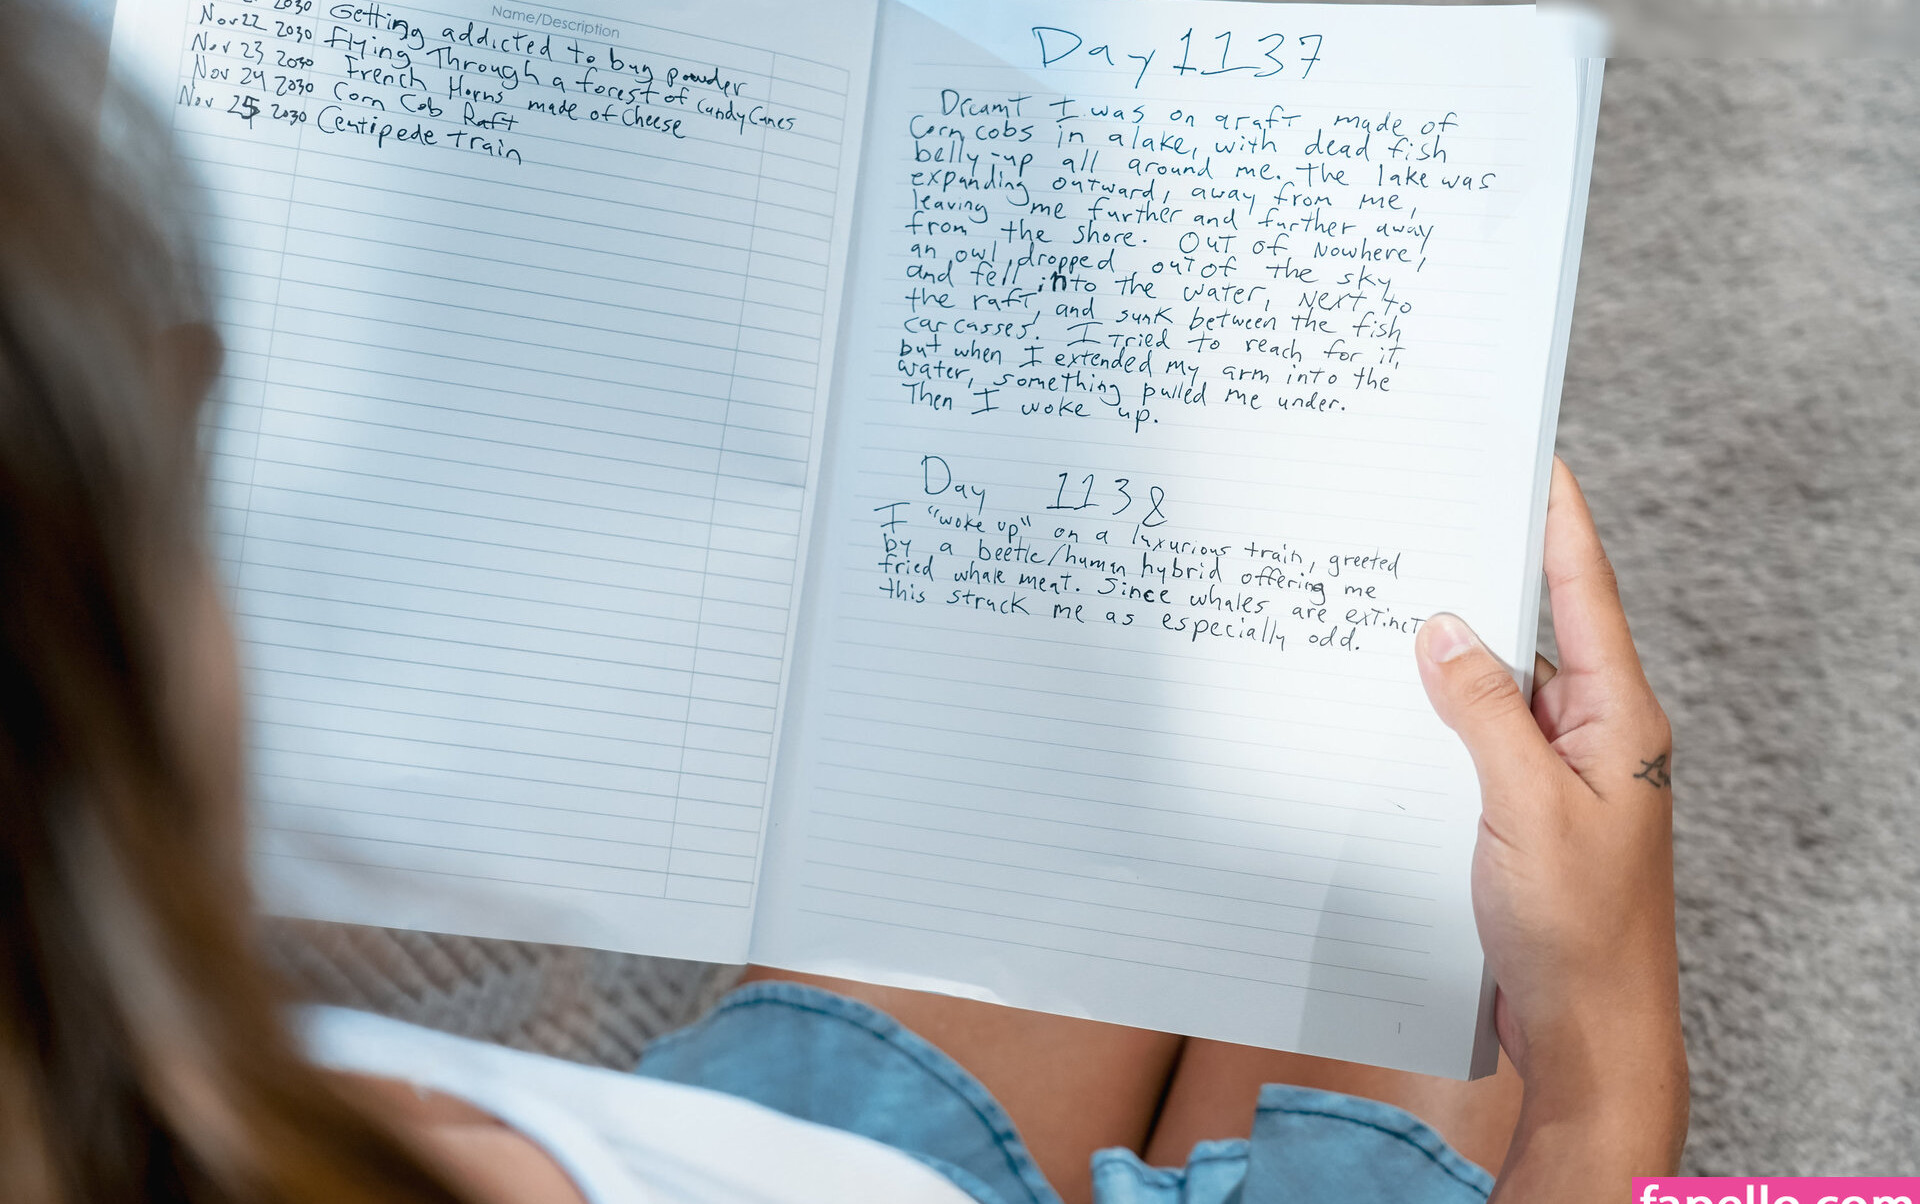 Name/Description
2030 Getting addicted to bug powder
Nov 22 2030 Flying Through a forest of Candy Canes
Nov 23 2030 French Horns made of Cheese
Nov 24 2030 Corn Cob Raft
Nov 25 2030 Centipede Train
Day 1137
Dreamt I was on a raft made of
Corn cobs in a lake, with dead fish
belly-up all around me. The lake was
expanding outward, away from me,
leaving me further and further away
from the shore. Out of Nowhere,
an owl dropped out of the sky
and fell into the water, Next to
the raft, and sunk between the fish
carcasses. I tried to reach for it,
but when I extended my arm into the
water, something pulled me under.
Then I woke up.
Day 1138
I "woke up" on a luxurious train, greeted
by a beetle/human hybrid offering me
fried whale meat. Since whales are extinct
this struck me as especially odd.
1
fapello.com